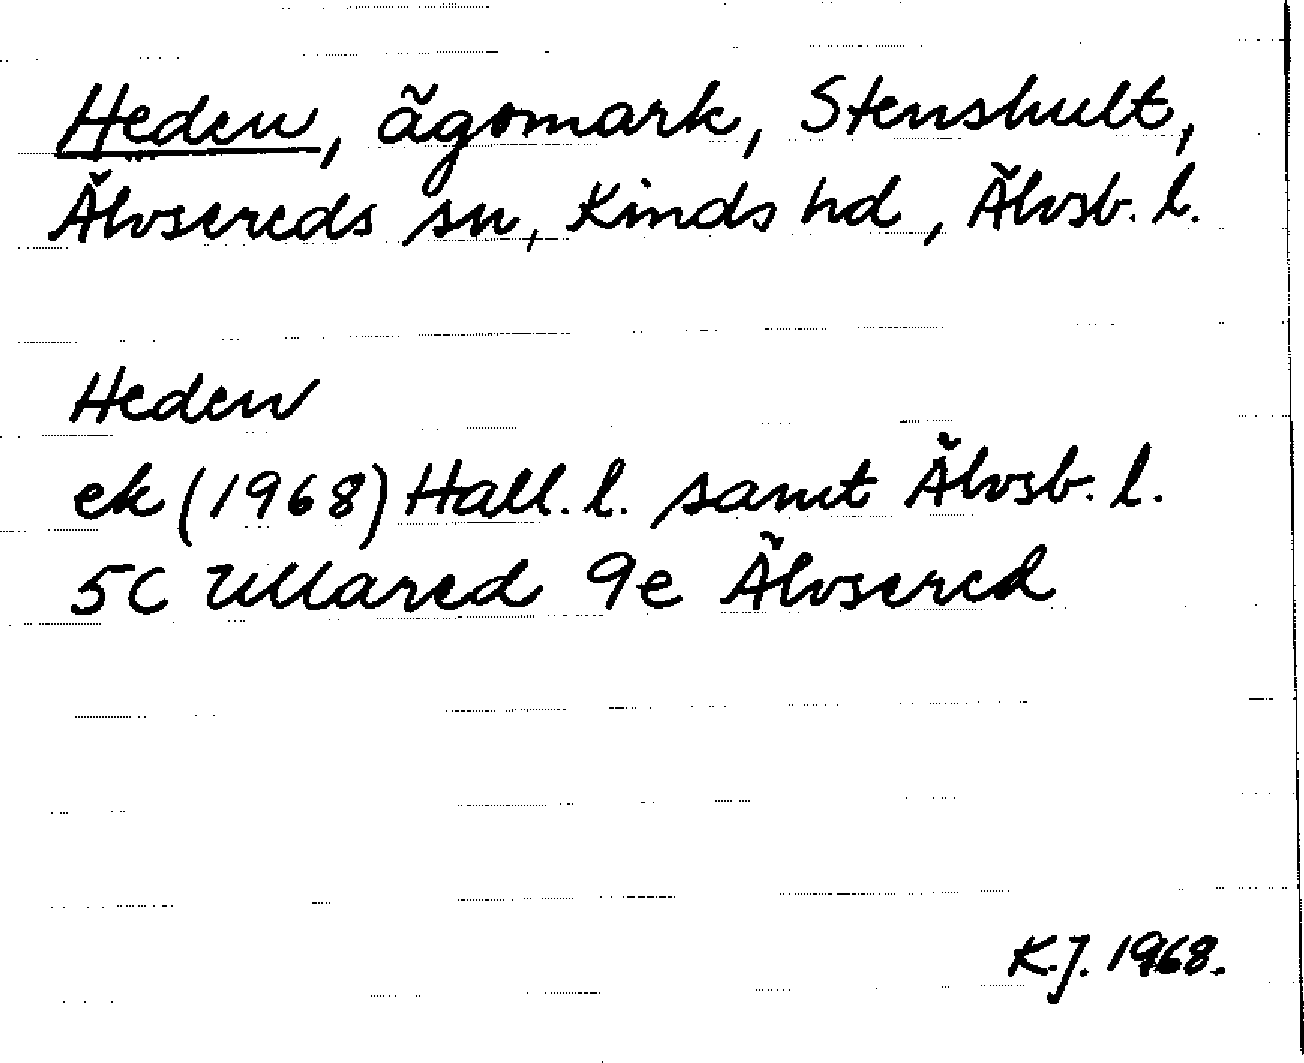 Heden, ägomark, Stenshult,
Älvsereds sn, Kinds hd, Älvsb. l.
Heden
ek (1968) Hall. l. samt Älvsb. l.
5C Ullared 9e Älvsered
K.J. 1968.